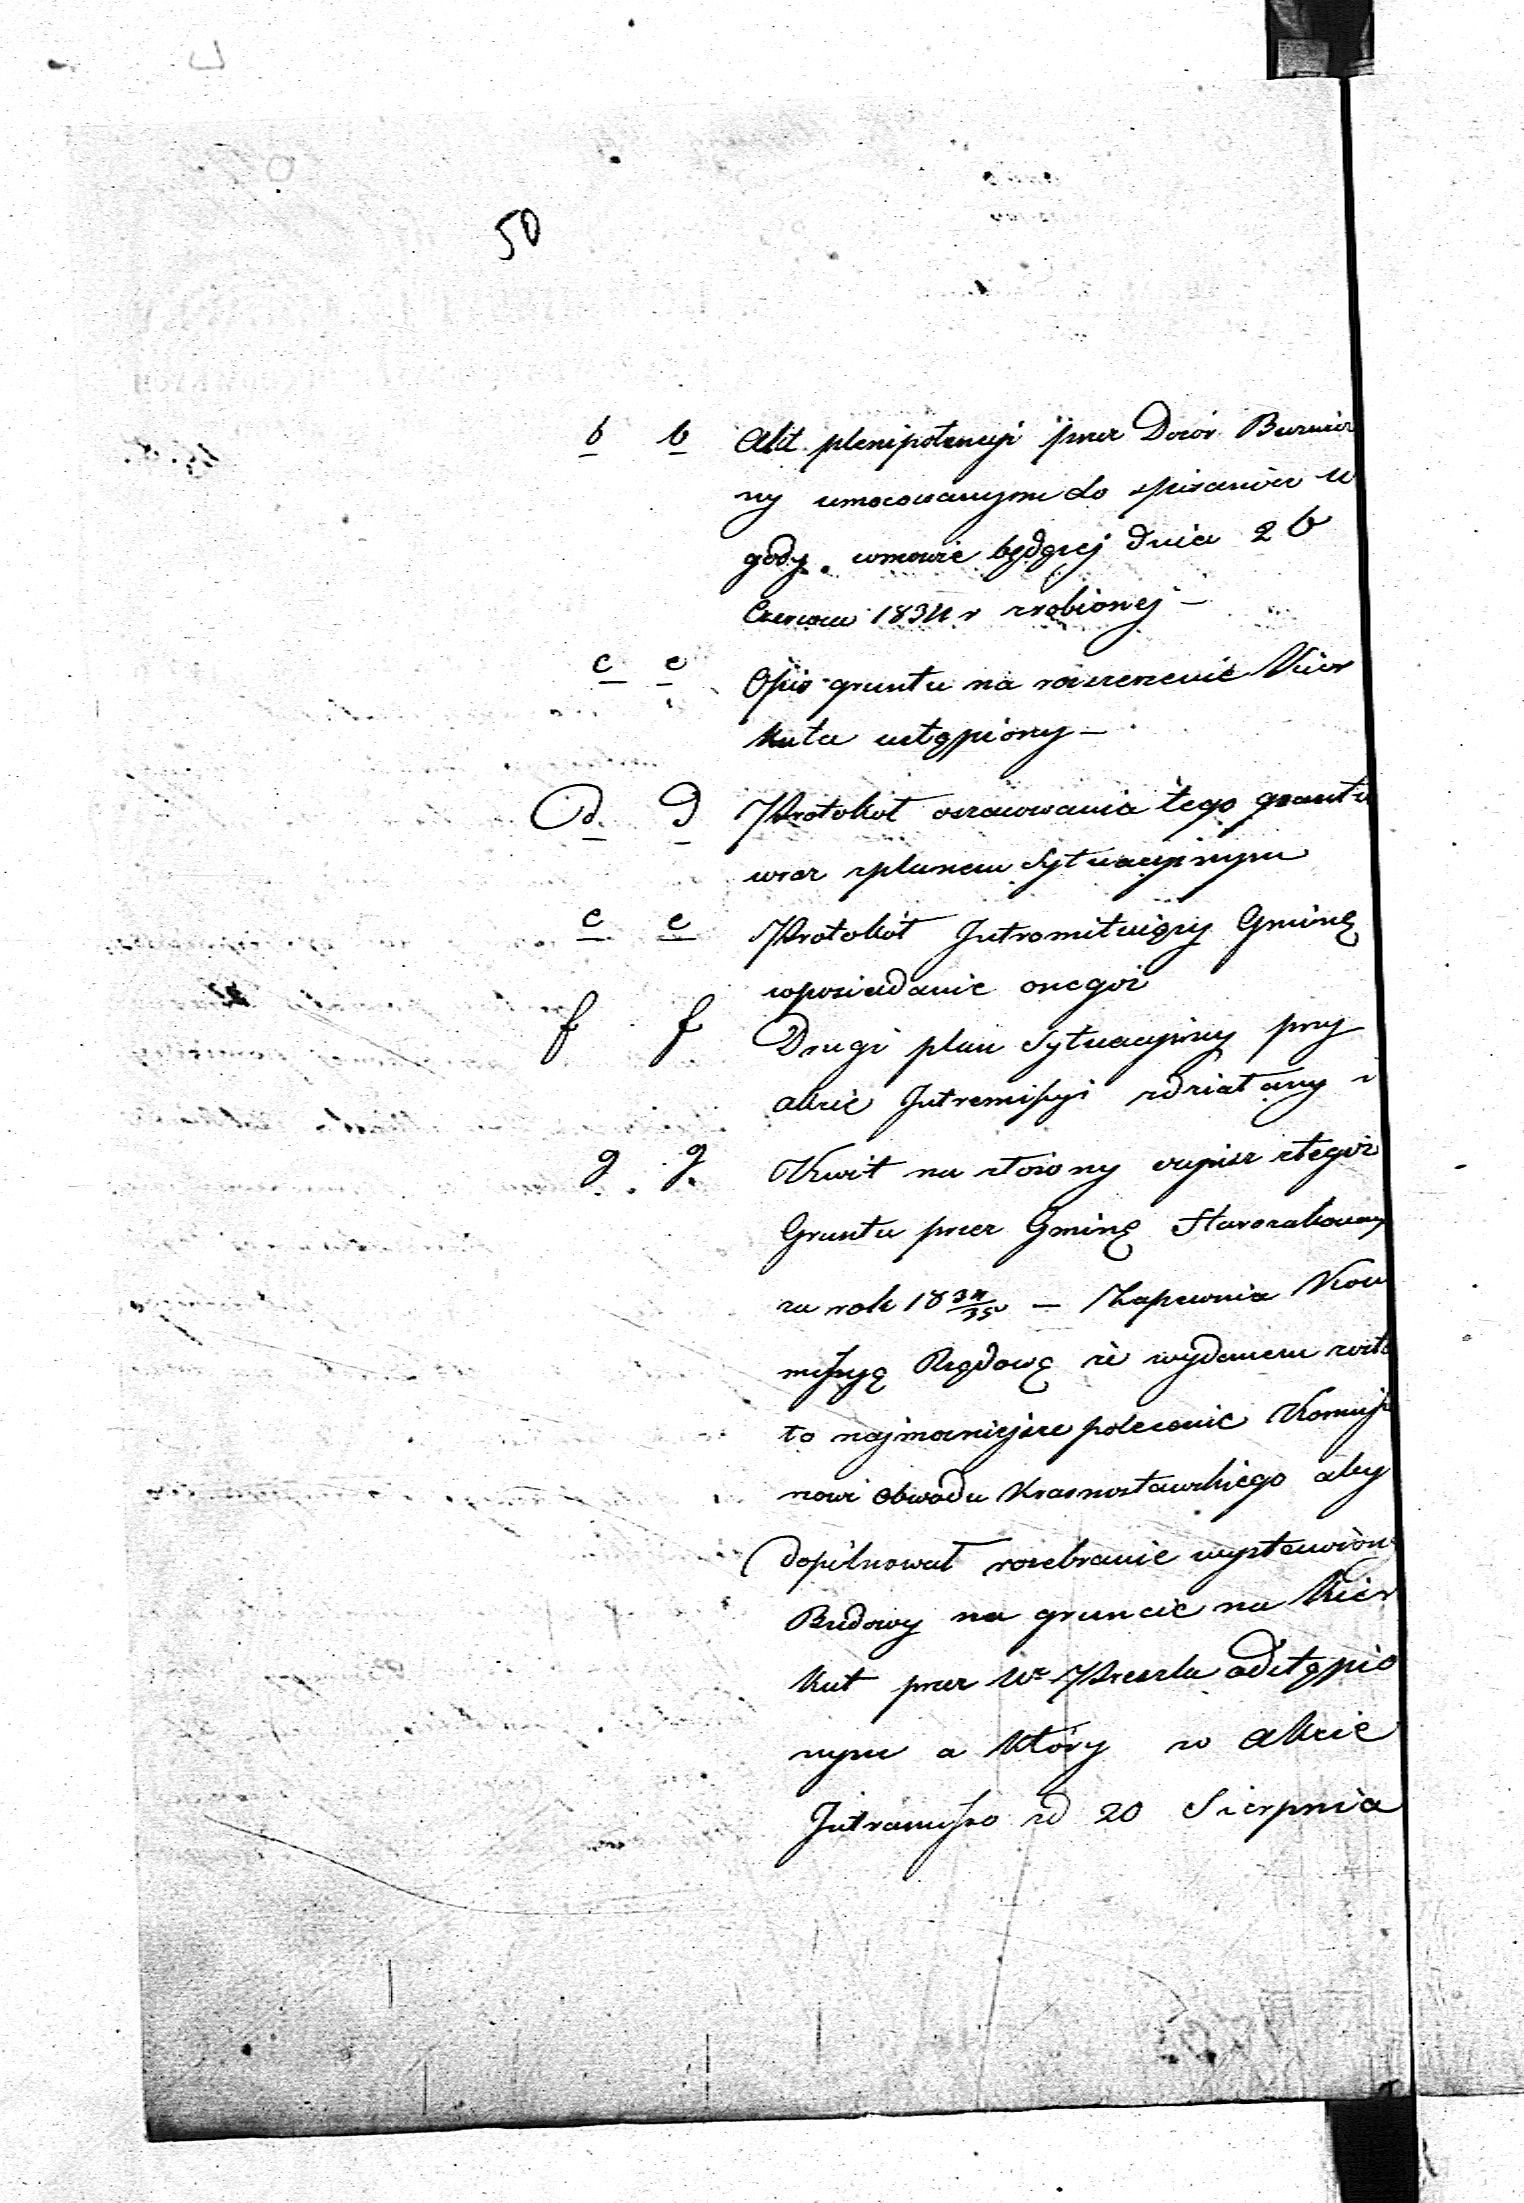 50
b b Akt plenipotencyi przez Dozór Bużnicz
ny umocowanym do spisania u
gody. wmowie będącej dnia 26
Czerwca 1834 r zrobionej –
c c Opis gruntu na rozszerzenie Kier
kuta ustąpiony –
d. d Protokół oszacowania tego gruntu
wraz zplanem Sytuacyjnym
e e Protokół Intromitujący Gminę
wposiadanie onegoż
f f Drugi plan Sytuacyjny przy
akcie Intromissyi zdziałany i
g g. Kwit na złożony czynsz ztegoż
Gruntu przez Gminę Starozakonny
za rok 18 34/35 – Zapewnia Kom
missyę Rządową iż wydanem zosta
to najmocniejsze polecenie Kommissa
rzowi Obwodu Krasnostawskiego aby
dopilnował rozebranie wystawion
Budowy na gruncie na Kier
kut przez Wo odstąpio
nym a który w akcie
Intromisso zd 20 Sierpnia